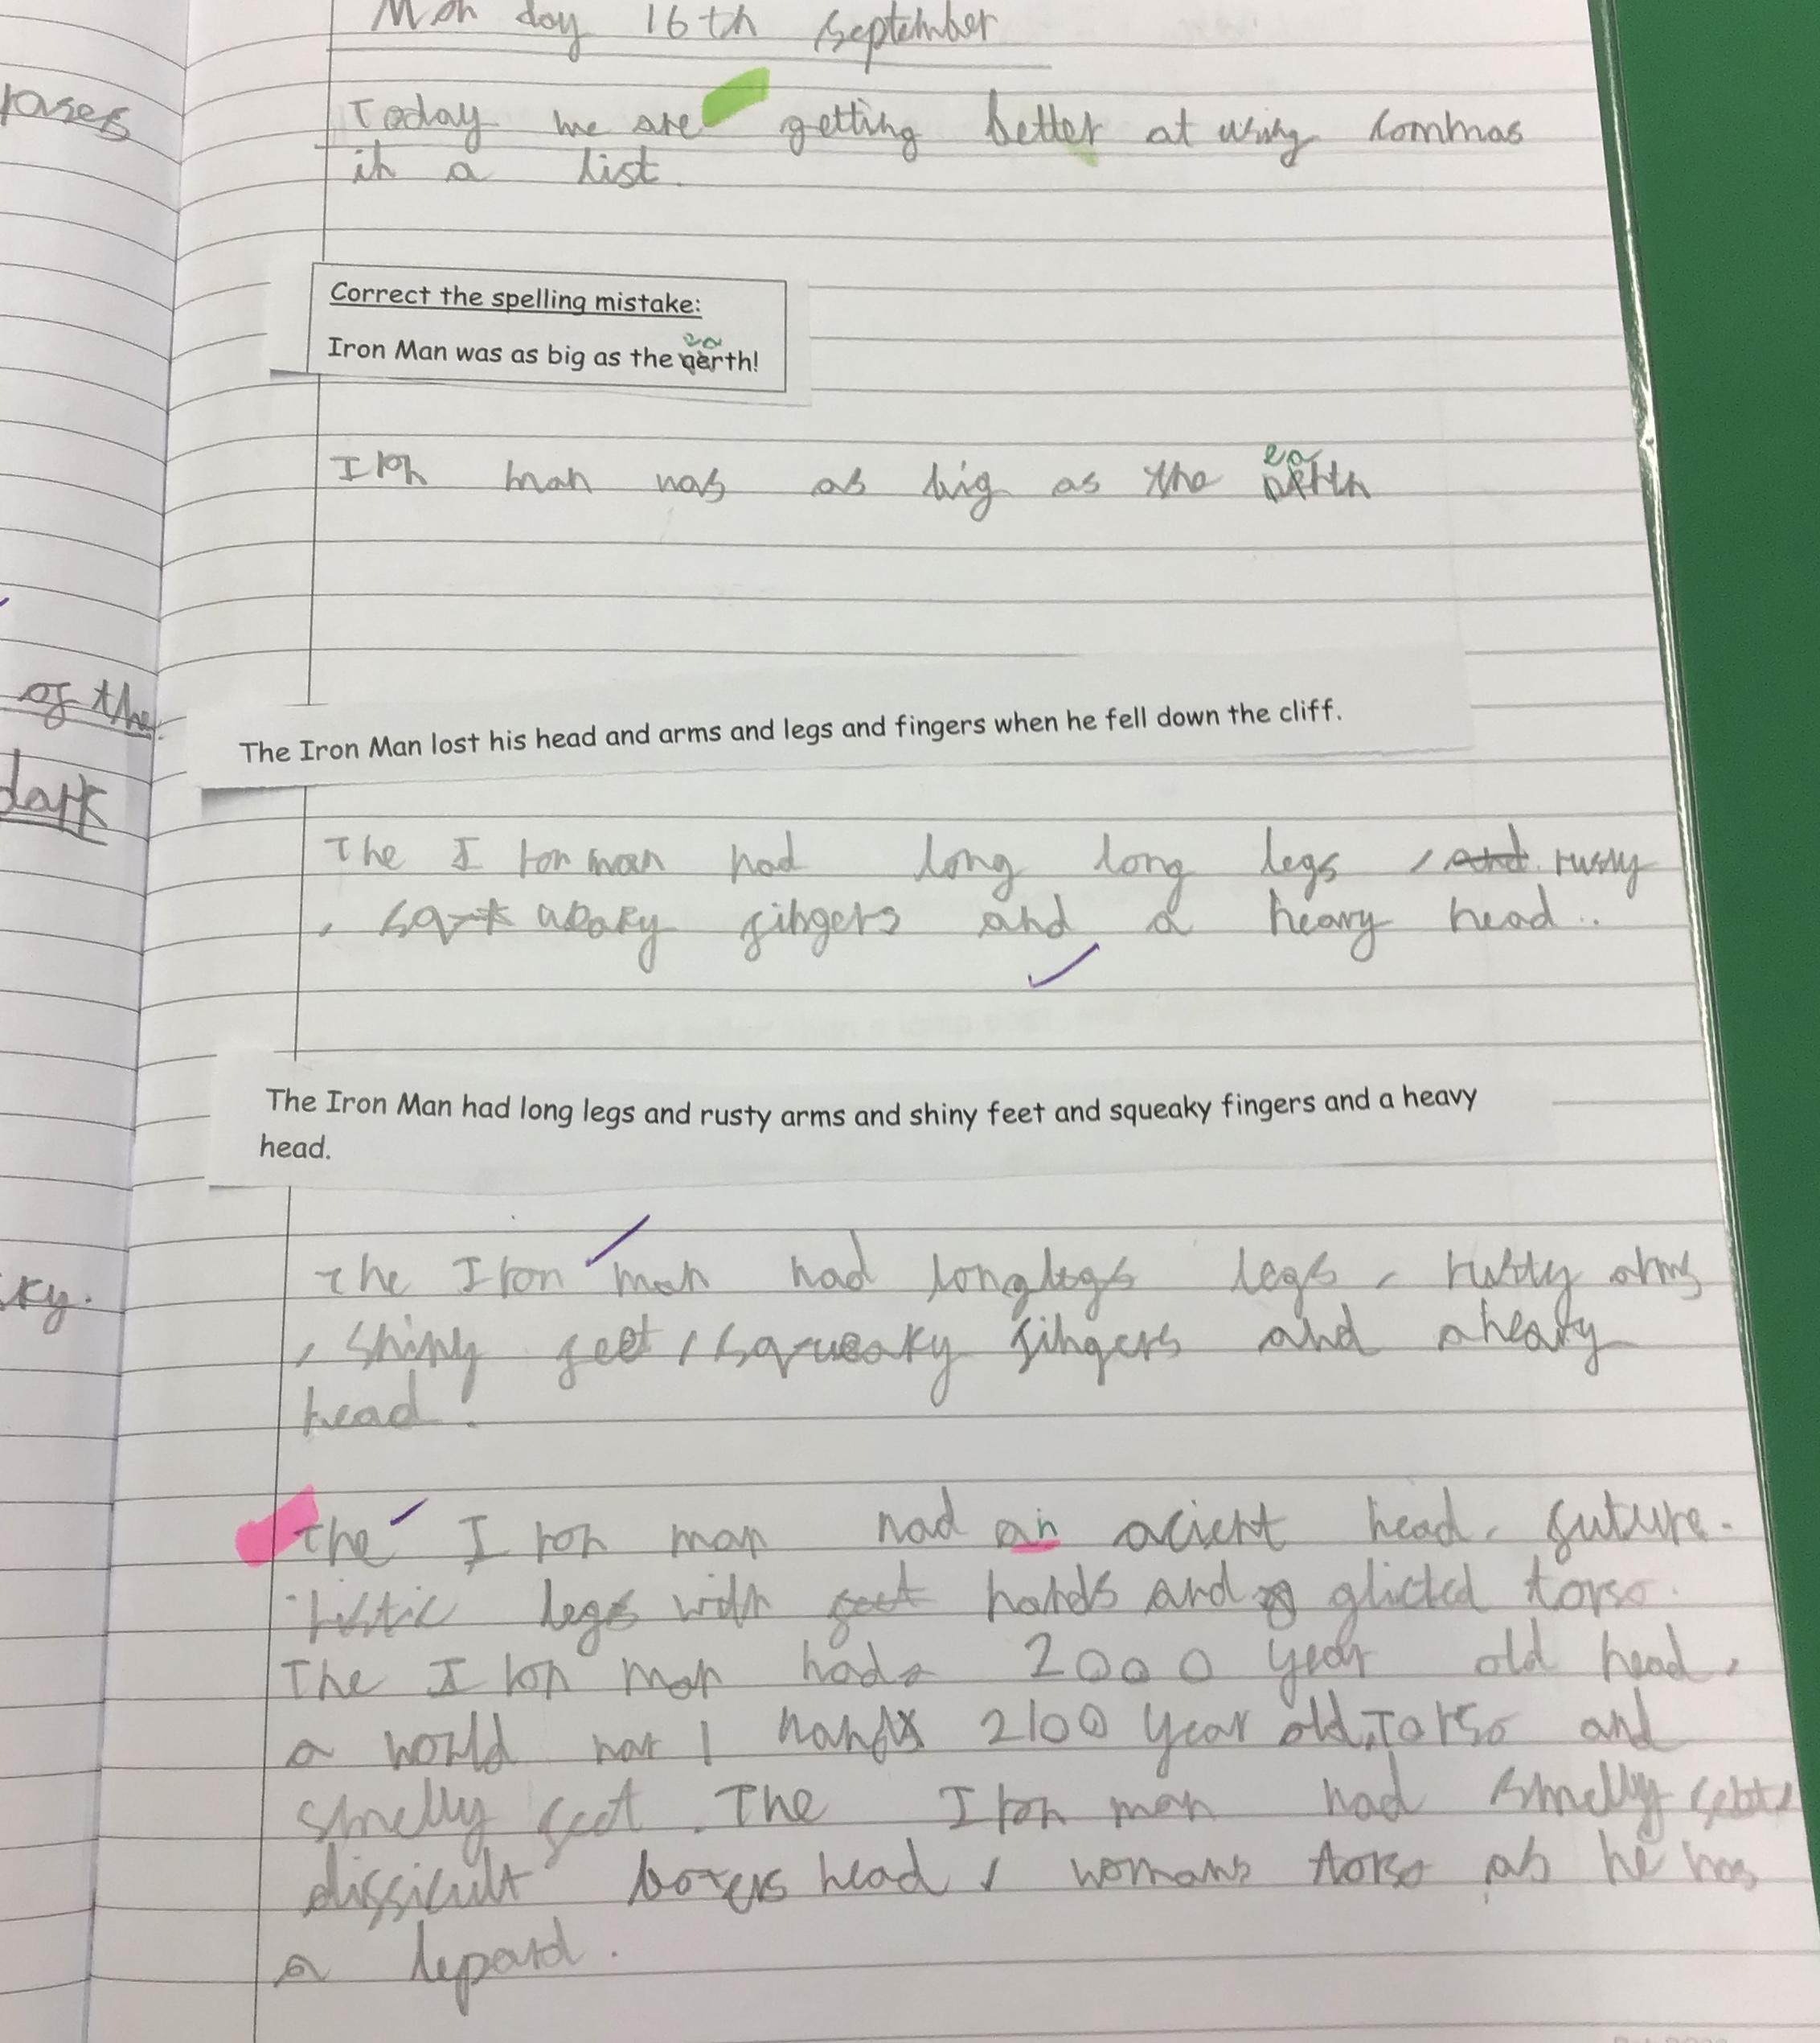 Monday 16th September
Today we are getting better at using commas
in a list.
Correct the spelling mistake:
Iron Man was as big as the aerth!
ea
Iron man was as big as the earth
ea
The Iron Man lost his head and arms and legs and fingers when he fell down the cliff.
The Iron man had long long legs , and rusty
, squeaky fingers and a heavy head..
The Iron Man had long legs and rusty arms and shiny feet and squeaky fingers and a heavy
head.
The Iron man had long legs legs, rusty arms
, shiny feet, squeaky fingers and a heavy
head.
The Iron man had an acient head, future-
ristic legs with feet hands and glicted torso.
The Iron man had a 2000 year old head,
a world war 1 hands 2100 year old, Torso and
smelly feet. The Iron man had smelly
difficult boxers head, womans torso as he has
a lepard.
of the
dark
ky.